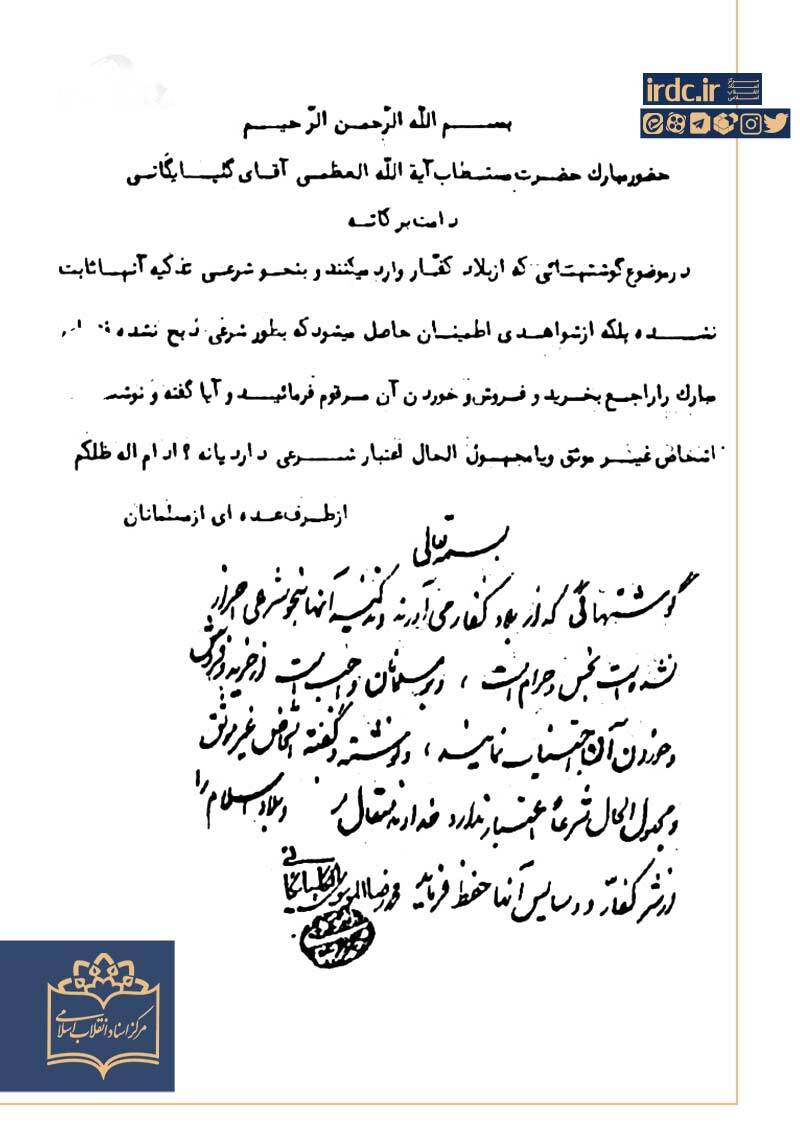 irdc.ir
مرکز اسناد انقلاب اسلامی
بسم الله الرّحمن الرّحیم
حضور مبارك حضرت مستطاب آیة الله العظمی آقای گلپایگانی
دامت برکاته
درموضوع گوشتهائی که از بلاد کفّار وارد میکنند و بنحو شرعی تذکیه آنها ثابت
نشده بلکه از شواهدی اطمینان حاصل میشود که بطور شرعی ذبح نشده
مبارك را راجع بخرید و فروش و خوردن آن مرقوم فرمائید و آیا گفته و نوشته
اشخاص غیر موثق و یا مجهول الحال اعتبار شرعی دارد یا نه ؟ ادام اله ظلکم
از طرف عده ای از مسلمانان
بسمه تعالی
گوشتهائی که از بلاد کفار می آورند و تذکیه آنها بنحو شرعی احراز
نشده است نجس و حرام است ، و بر مسلمانان واجب است از خرید و فروش
و خوردن آن اجتناب نمایند ، و نوشته و گفته اشخاص غیر موثق
و مجهول الحال شرعاً اعتبار ندارد خداوند متعال و بلاد اسلام را
از شر کفار و دسایس آنها حفظ فرماید محمد رضا الموسوی الگلپایگانی
مرکز اسناد انقلاب اسلامی